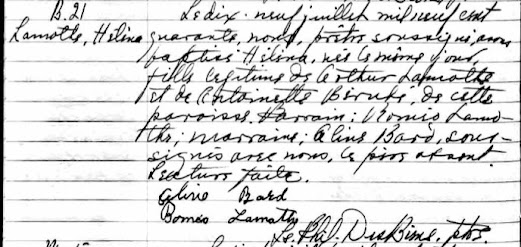 B. 21
Lamothe, Hélina
Le dix-neuf juillet mil neuf cent
quarante, nous, prêtre soussigné, avons
baptisé Hélina, née le même jour,
fille légitime de Arthur Lamothe
et de Antoinette Bérubé, de cette
paroisse. Parrain: Roméo Lamo-
the; marraine; Aline Bard, sous-
signés avec nous, le père absent.
Lecture faite.
Aline Bard
Romeo Lamothe
ptre